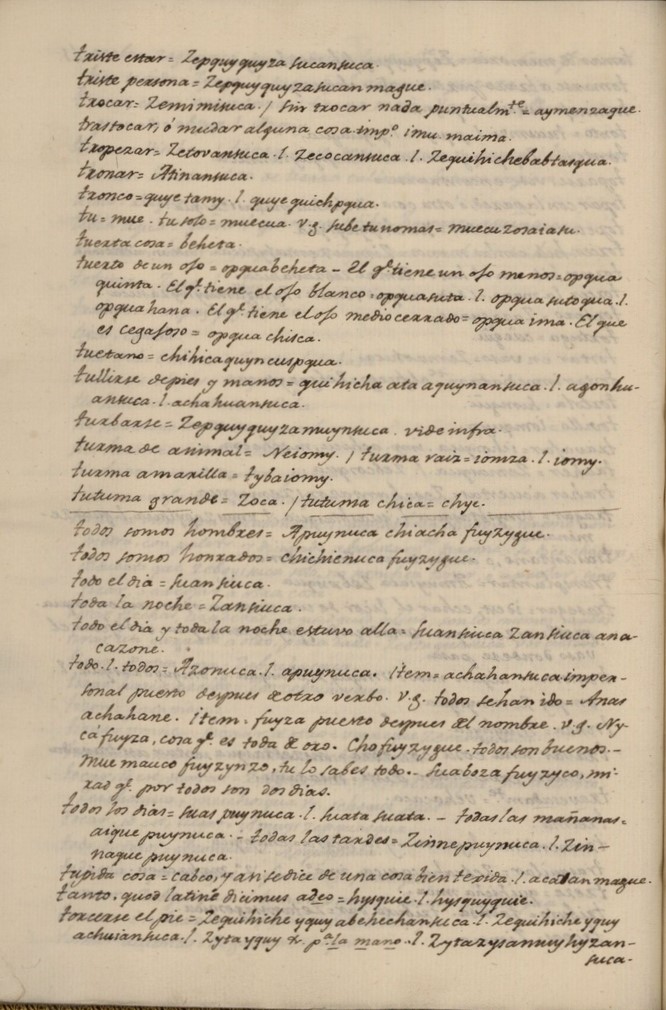 triste estar= Zepquyquyza sucansuca.
triste persona= Zepquyquyzasucan mague.
trocar= Zemimisuca. / sin trocar nada puntualmte= aymenzague.
trastocar, ó mudar alguna cosa. impo. imu maima.
tropezar= Zetovansuca. l. Zecocansuca. l. Zequihichebabtasqua.
tronar= Atinansuca.
tronco= quye tamy. l. quye quichpqua.
tu= mue. tu solo= muecua. v.g. sube tu nomas= muecu zosaiasu.
tuerta cosa= beheta.
tuerto de un ojo= opquabeheta - El q. tiene un ojo menos= opqua
quinta. El q. tiene el ojo blanco, opquasuta. l. opqua sutoqua. l.
opquahana. El q. tiene el ojo mediocerrado= opqua ima. El que
es cegajoso= opqua chisca.
tuetano= chihicaquyncuspqua.
tullirse de pies y manos= quihicha ata aquynansuca. l. agonhu-
ansuca. l. achahuansuca.
turbarse= Zepquyquyzamuynsuca. vide infra.
turma de animal= Neiomy. / turma raiz= iomza. l. iomy.
turma amarilla= tybaiomy.
tutuma grande= Zoca. / tutuma chica= chye.
todos somos hombres= Apuynuca chiacha fuyzyque.
todos somos honrados= chichienuca fuyzyque.
todo el dia= suansuca.
toda la noche= Zansuca.
todo el dia y toda la noche estuvo alla= suansuca Zansuca ana-
cazone.
todo. l. todos= Azonuca. l. apuynuca. item= achahansuca. imper-
sonal puesto despues de otro verbo. v.g. todos se han ido= Anas
achahane. item. fuyza puesto despues del nombre. v.g. Ny-
cá fuyza, cosa q. es toda de oro. Cho fuyzyque. todos son buenos.-
Mue mauco fuyzynzo, tu lo sabes todo.- suaboza fuyzyco, mi-
rad q. por todos son dos dias.
todos los dias= suas puynuca. l. suata suata. - todas las mañanas=
aique puynuca. - todas las tardes= Zinnepuynuca. l. Zin-
naque puynuca.
tupida cosa= cabco, y an se dice de una cosa bien texida. l. acatan mague.
tanto. quod latinè dicimus adeo= hysquie. l. hysquyquie.
torcerse el pie= Zequihiche yquy abehechansuca. l. Zequihiche yquy
achuiansuca. l. Zyta yquy &. pa. la mano. l. Zytazysanmuyhyzan-
suca.